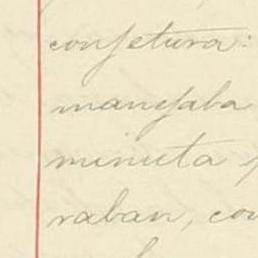 confetura:
manejaba
minuta
raban, con